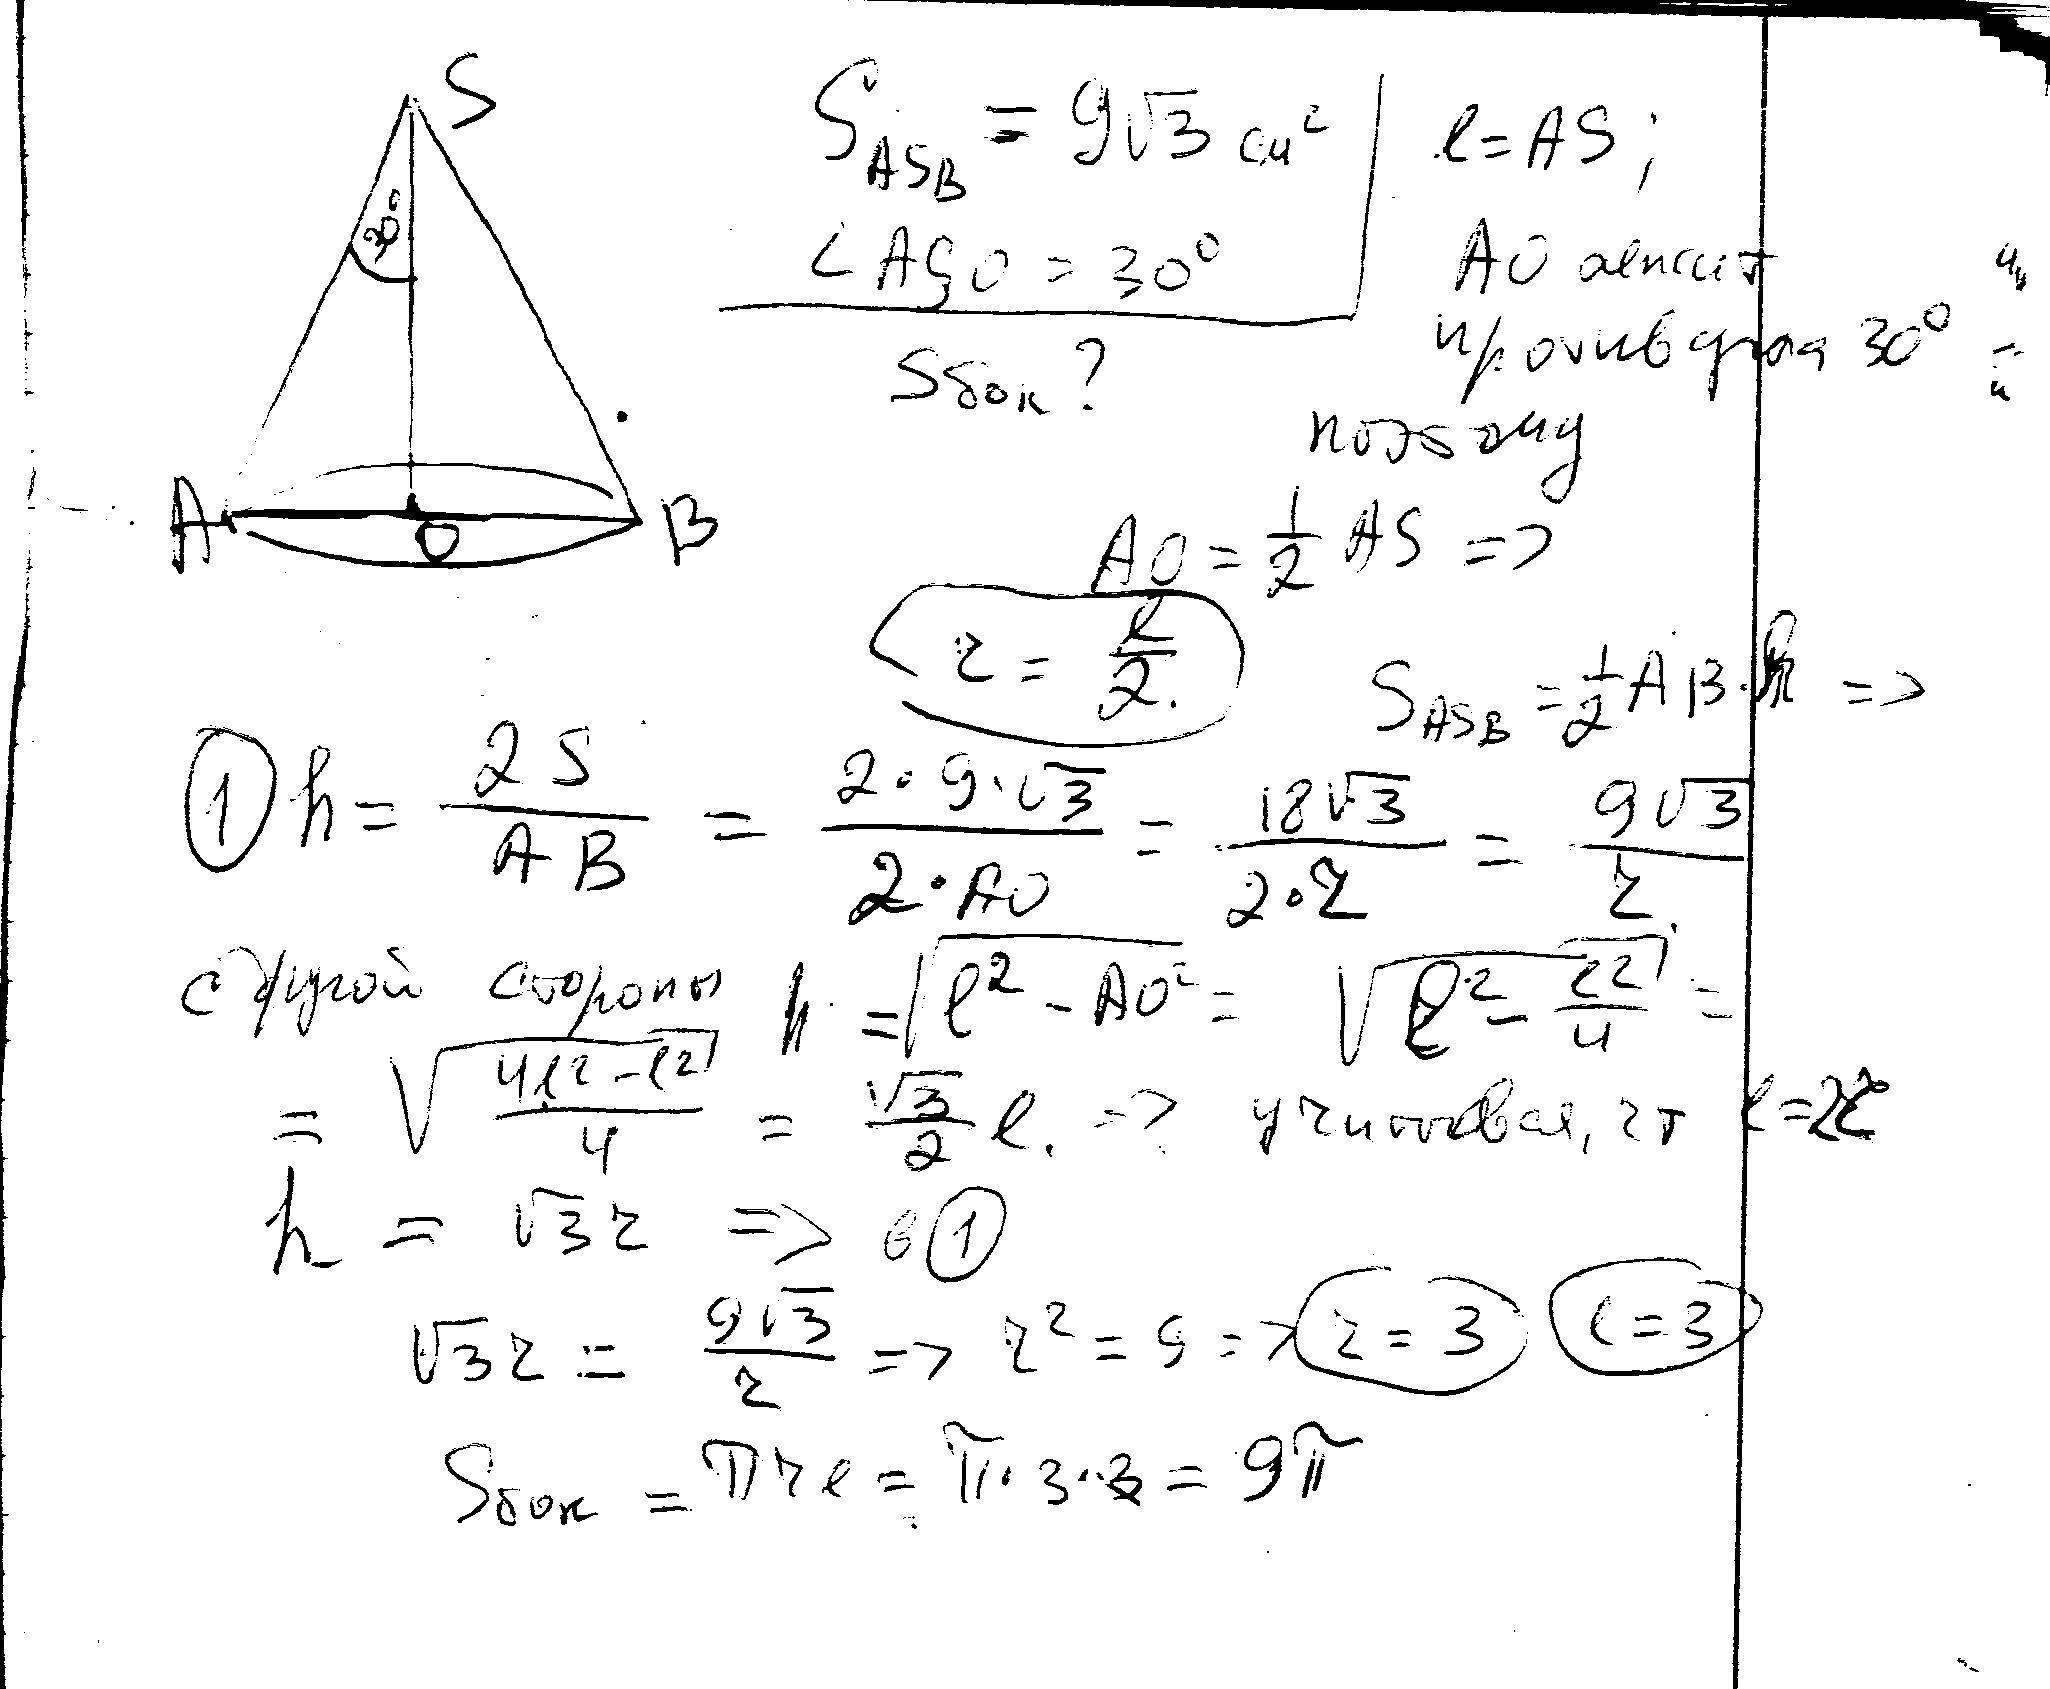 S
30°
A
O
B
S_ASB = 9√3 см²
∠ASO = 30°
Sбок?
l = AS;
AO лежит
против угла 30°
поэтому
AO = 1/2 AS =>
r = l/2.
S_ASB = 1/2 AB·h =>
① h = 2S/AB = 2·9·√3/2·AO = 18√3/2·r = 9√3/r
с другой стороны h = √(l² - AO²) = √(l² - l²/4) =
= √((4l² - l²)/4) = √3/2 l. => учитывая, чт l = 2r
h = √3 r => в ①
√3 r = 9√3/r => r² = 9 => r = 3 l = 3
Sбок = πrl = π·3·3 = 9π